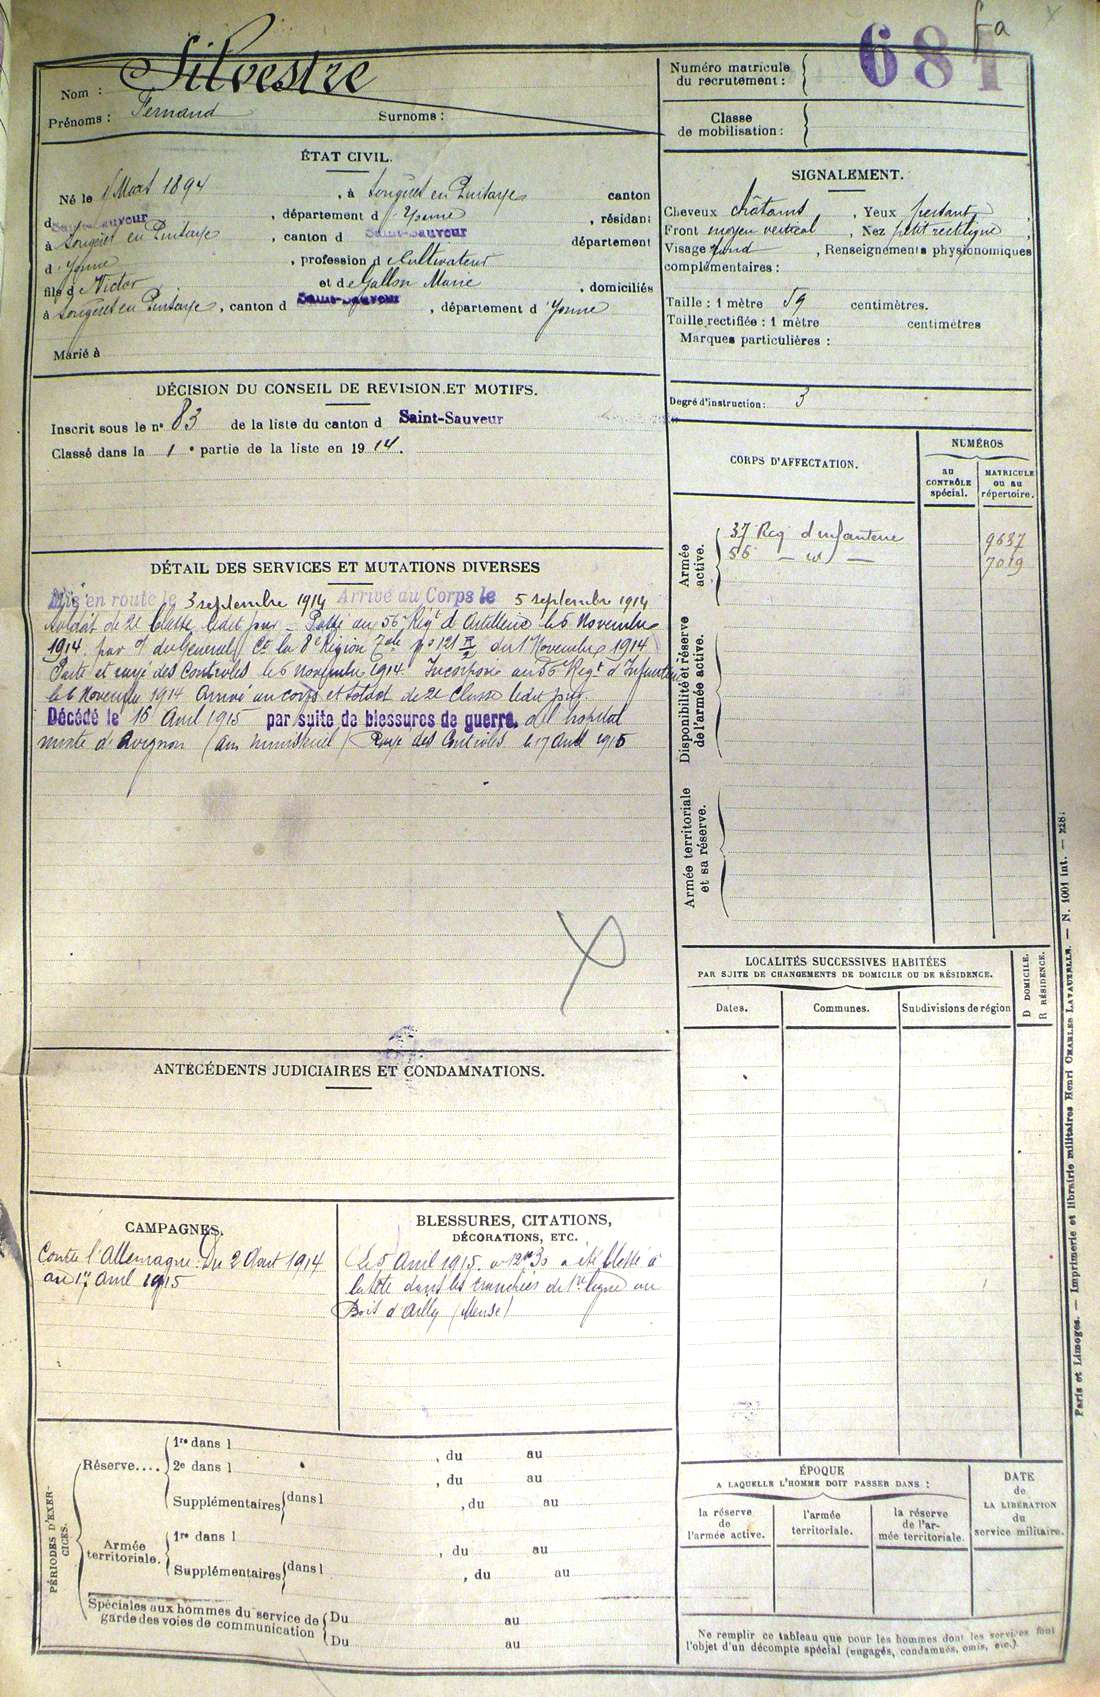 Fa
681
Nom : Silvestre
Prénoms : Fernand Surnoms :
Numéro matricule
du recrutement :
Classe
de mobilisation :
ÉTAT CIVIL.
Né le Mars 1894, à Sougères en Puisaye canton
d Saint-Sauveur, département d'Yonne, résidant
à Sougères en Puisaye, canton d Saint-Sauveur département
d'Yonne, profession de Cultivateur
fils de Victor et de Gallon Marie, domiciliés
à Sougères en Puisaye, canton d Saint-Sauveur, département d'Yonne
Marié à
SIGNALEMENT.
Cheveux châtains, Yeux
Front moyen vertical, Nez petit rectiligne,
Visage rond, Renseignements physionomiques
complémentaires :
Taille : 1 mètre 59 centimètres.
Taille rectifiée : 1 mètre centimètres
Marques particulières :
Degré d'instruction : 3
DÉCISION DU CONSEIL DE REVISION ET MOTIFS.
Inscrit sous le n° 83 de la liste du canton d Saint-Sauveur
Classé dans la 1e partie de la liste en 1914.
CORPS D'AFFECTATION.
NUMÉROS
au
CONTRÔLE
spécial.
MATRICULE
ou au
répertoire.
Armée
active.
37 Reg d'infanterie 9637
56 — id — 7019
Disponibilité et réserve
de l'armée active.
Armée territoriale
et sa réserve.
DÉTAIL DES SERVICES ET MUTATIONS DIVERSES
Mis en route le 3 septembre 1914 Arrivé au Corps le 5 septembre 1914
Soldat de 2e Classe ledit jour – Passé au 56e Régt d'Artillerie le 5 Novembre
1914, par du Général Ct la 8e Région n° 121 du 1 Novembre 1914
et rayé des Controles le 6 novembre 1914. Incorporé au 56e Régt d'Infanterie
le 6 Novembre 1914 Arrivé au corps et soldat de 2e Classe ledit jour.
Décédé le 16 Avril 1915 par suite de blessures de guerre. à l'hôpital
mixte d'Avignon (Avis ministériel) Rayé des Controles le 17 Avril 1915
LOCALITÉS SUCCESSIVES HABITÉES
PAR SUITE DE CHANGEMENTS DE DOMICILE OU DE RÉSIDENCE.
Dates. Communes. Subdivisions de région
D DOMICILE.
R RÉSIDENCE.
ANTÉCÉDENTS JUDICIAIRES ET CONDAMNATIONS.
CAMPAGNES.
Contre l'Allemagne : Du 2 Aout 1914
au 17 Avril 1915
BLESSURES, CITATIONS,
DÉCORATIONS, ETC.
Le 5 Avril 1915. à 12h30 a été blessé à
la tête dans les tranchées de 1re ligne au
Bois d'Ailly (Meuse)
PÉRIODES D'EXERCICES.
Réserve....
1re dans l , du au
2e dans l , du au
Supplémentaires dans l , du au
Armée
territoriale.
1re dans l , du au
Supplémentaires dans l , du au
Spéciales aux hommes du service de
garde des voies de communication
Du au
Du au
ÉPOQUE
A LAQUELLE L'HOMME DOIT PASSER DANS :
la réserve
de
l'armée active.
l'armée
territoriale.
la réserve
de l'ar-
mée territoriale.
DATE
de
LA LIBÉRATION
du
service militaire.
Ne remplir ce tableau que pour les hommes dont les services font
l'objet d'un décompte spécial (engagés, condamnés, omis, etc.).
Paris et Limoges. — Imprimerie et librairie militaires Henri CHARLES LAVAUZELLE. — N. 1001 int. — 228.